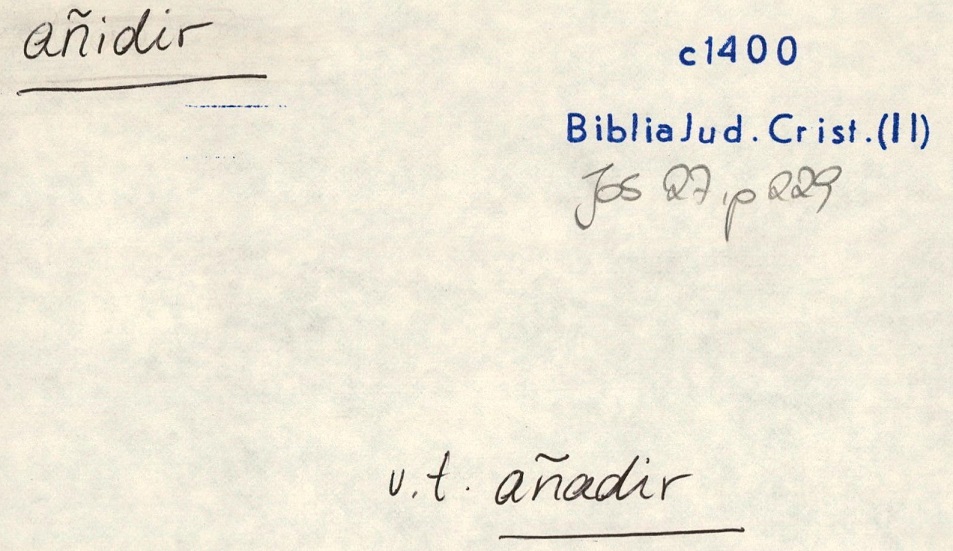 añidir
c1400
Biblia Jud. Crist. (II)
Jos 27, p 229
v.t. añadir